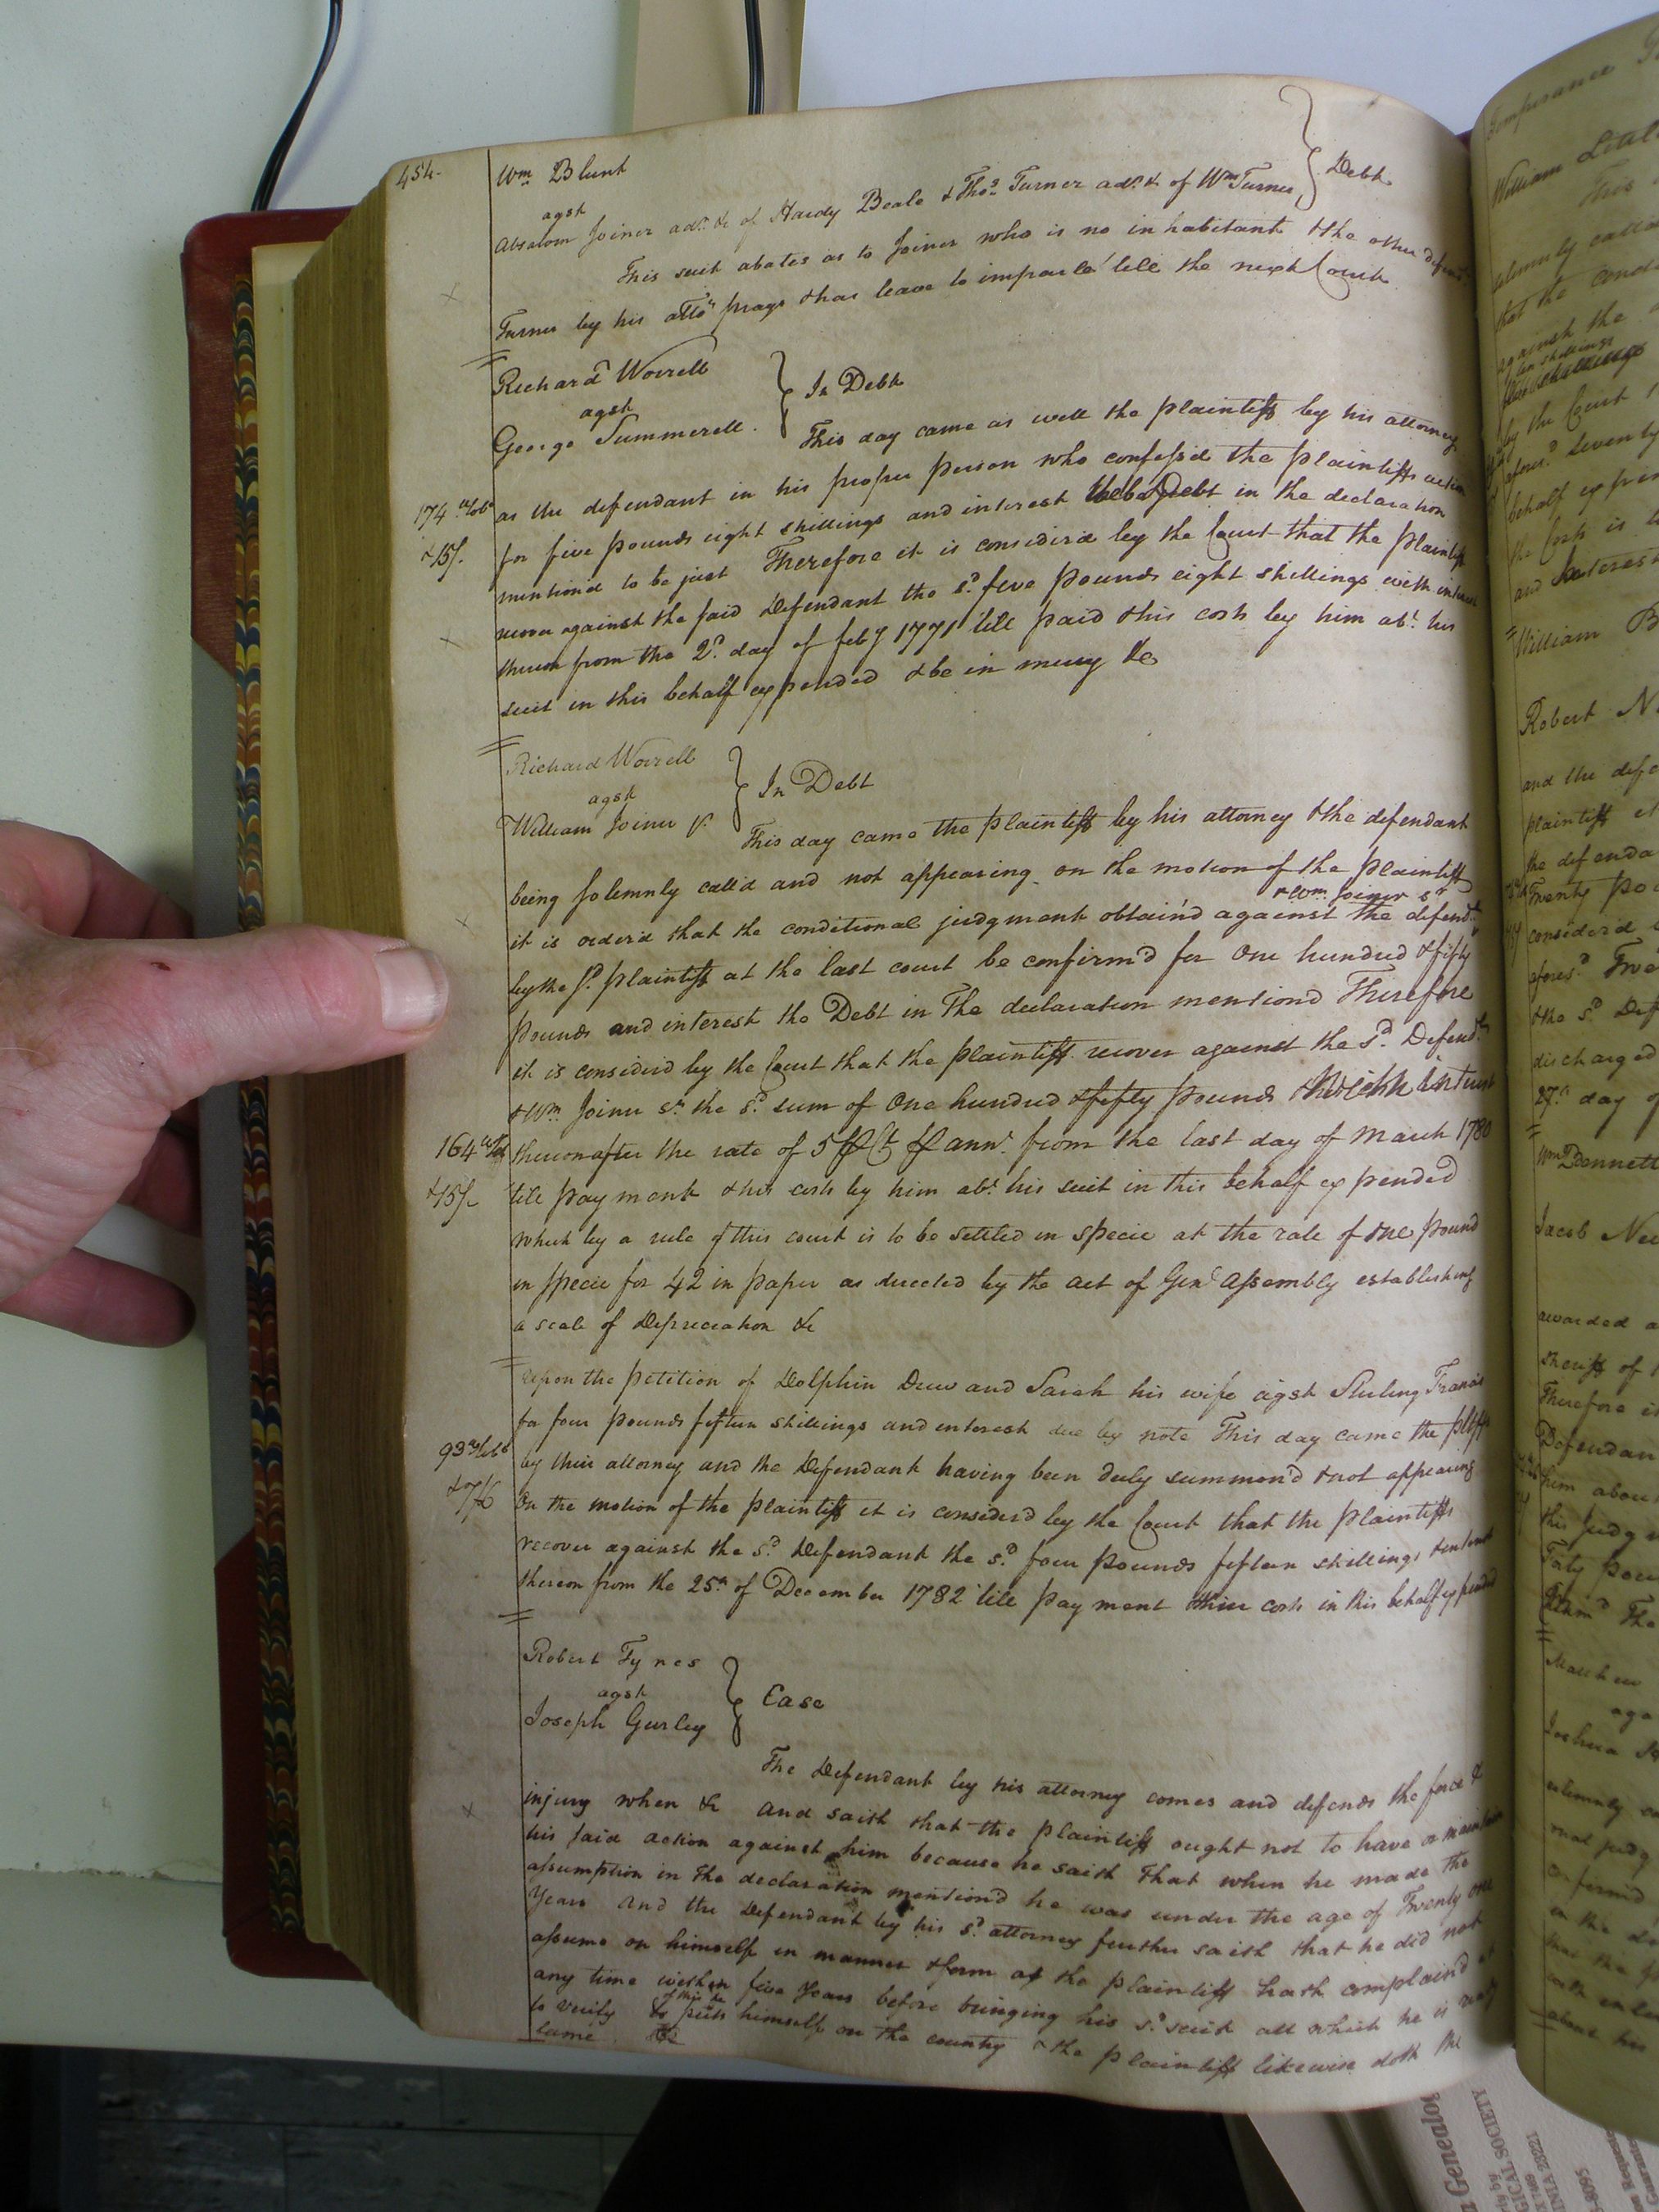 454.
Wm Blunt
agst
Absalom Joiner adr. &c of Hardy Beale & Thos. Turner adr. &c of Wm Turner } Debt
This suit abates as to Joiner who is no inhabitant & the other defendt.
Turner by his atto. prays & has leave to imparle till the next Court
Richard Worrell
agst } In Debt
George Summerell.
This day came as well the plaintiff by his attorney
as the defendant in his proper person who confessed the plaintiffs action
for five pounds eight shillings and interest the Debt in the declaration
174 lb tobo
&15/.
mention'd to be just Therefore it is consider'd by the Court that the plaintiff
recover against the said Defendant the sd. five pounds eight shillings with interest
thereon from the 2d. day of feby 1771 'till paid & his costs by him abt. his
suit in this behalf expended & be in mercy &c
Richard Worrell
agst } In Debt
William Joiner jr.
This day came the plaintiff by his attorney & the defendant
being solemnly call'd and not appearing on the motion of the plaintiff
& Wm Joiner sr
it is order'd that the conditional judgment obtain'd against the defendt.
by the sd. plaintiff at the last court be confirm'd for One hundred & fifty
pounds and interest the Debt in The declaration mention'd Therefore
it is consider'd by the Court that the plaintiff recover against the sd. Defendt.
& Wm Joiner sr. the sd. sum of One hundred & fifty pounds with Interest
164
&15/.
thereon after the rate of 5 P Ct P annm. from the last day of March 1780
till payment & his costs by him abt. his suit in this behalf expended
which by a rule of this court is to be settled in specie at the rate of one pound
in specie for 42 in paper as directed by the act of Genl Assembly establishing
a scale of Depreciation &c
Upon the petition of Dolphin Drew and Sarah his wife agst Sterling Francis
for four pounds fifteen shillings and interest due by note This day came the pltffs
93 lb tobo
&7/6
by their attorney and the Defendant having been duly summon'd & not appearing
On the motion of the plaintiff it is consider'd by the Court that the plaintiffs
recover against the sd. Defendant the sd. four pounds fifteen shillings & interest
thereon from the 25th of December 1782 'till payment & their costs in this behalf expended
Robert Tynes
agst } Case
Joseph Gurley
The Defendant by his attorney comes and defends the force &
injury when &c And saith that the plaintiff ought not to have or maintain
his said action against him because he saith That when he made the
assumption in the declaration mention'd he was under the age of Twenty one
Years And the Defendant by his sd. attorney further saith that he did not
assume on himself in manner & form as the plaintiff hath complain'd at
any time within five Years before bringing his sd. suit all which he is ready
to verify & of this he puts himself on the country & the plaintiff likewise doth the
same &c
Temperance
William Little
This
solemnly called
that the condi
against the
ten shillings
by the Court
aforesd. Seventy
behalf expen
the Costs is
and Interest
William B
Robert N
and the defe
plaintiff
the defenda
Twenty pou
consider'd
aforesd. Twe
& the sd. Def
discharged
27th day of
Wm Bennett
Jacob Ne
awarded a
Sheriff of
Therefore it
Defendan
him abou
this judg
Forty pou
Matthew
aga
Joshua
solemnly ca
onal judg
confirm'd
in the de
that the p
with inter
about his
Genealog
ICAL SOCIETY
NIA 23221
8095